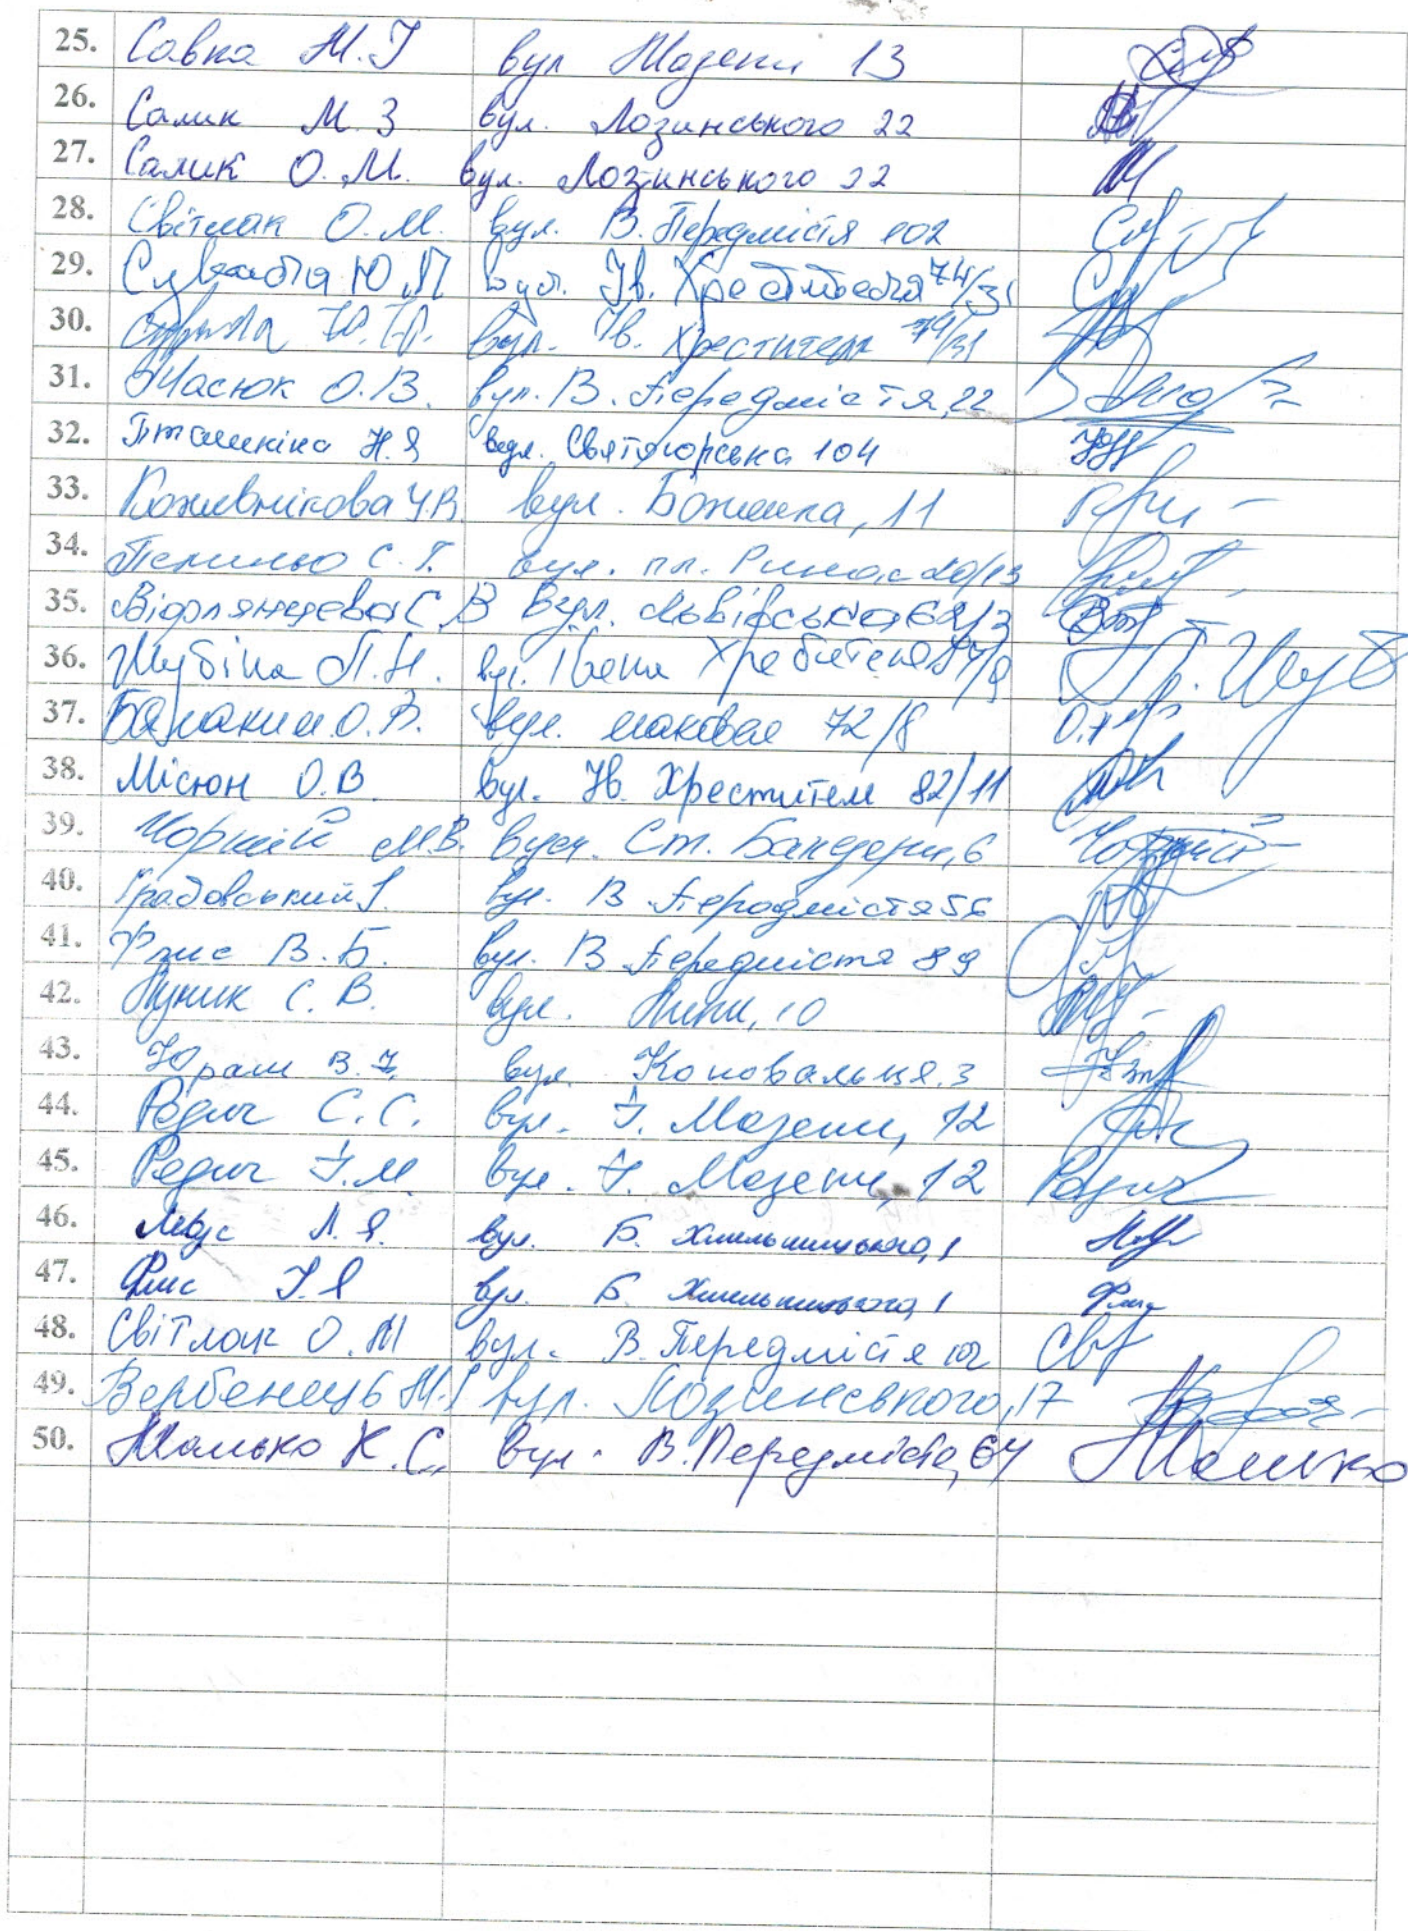 25. Савка М.І вул Мазепи 13
26. Салик М.З вул. Лозинського 22
27. Салик О.М. вул. Лозинського 22
28. Світлак О.М. вул. В. Передмістя 102
29. Ю.П вул. Ів. Хрестителя 74/31
30. вул. Ів. Хрестителя 74/31
31. Масюк О.В. вул. В. Передмістя, 22
32. Пташкіна Н.Я вул. Святогорська 104
33. Кожевнікова У.В. вул. Боженка, 11
34. С.Г. вул. пл. Ринок 20/13
35. С.В вул. Львівська 68/3
36. Шубіна Л.Н. вул. Івана Хрестителя
37. О.В. вул. 72/8
38. Місюн О.В. вул. Ів. Хрестителя 82/11
39. Чорній М.В. вул. Ст. Бандери, 6 Чорній
40. Градовський І. вул. В Передмістя 56
41. Фмис В.Б. вул. В Передмістя 89
42. С.В. вул. 10
43. Юраш В.І. вул. Коновальця. 3
44. Редич С.С. вул. І. Мазепи, 12
45. Редич І.М. вул. І. Мазепи, 12 Редич
46. Л.Я. вул. Б. Хмельницького, 1
47. Фмис І.Я вул. Б. Хмельницького, 1
48. Світлак О.М вул. В. Передмістя 102
49. Вербенець М.І вул. Лозинського, 17
50. Малько К.С. вул. В. Передмістя, 64 Малько